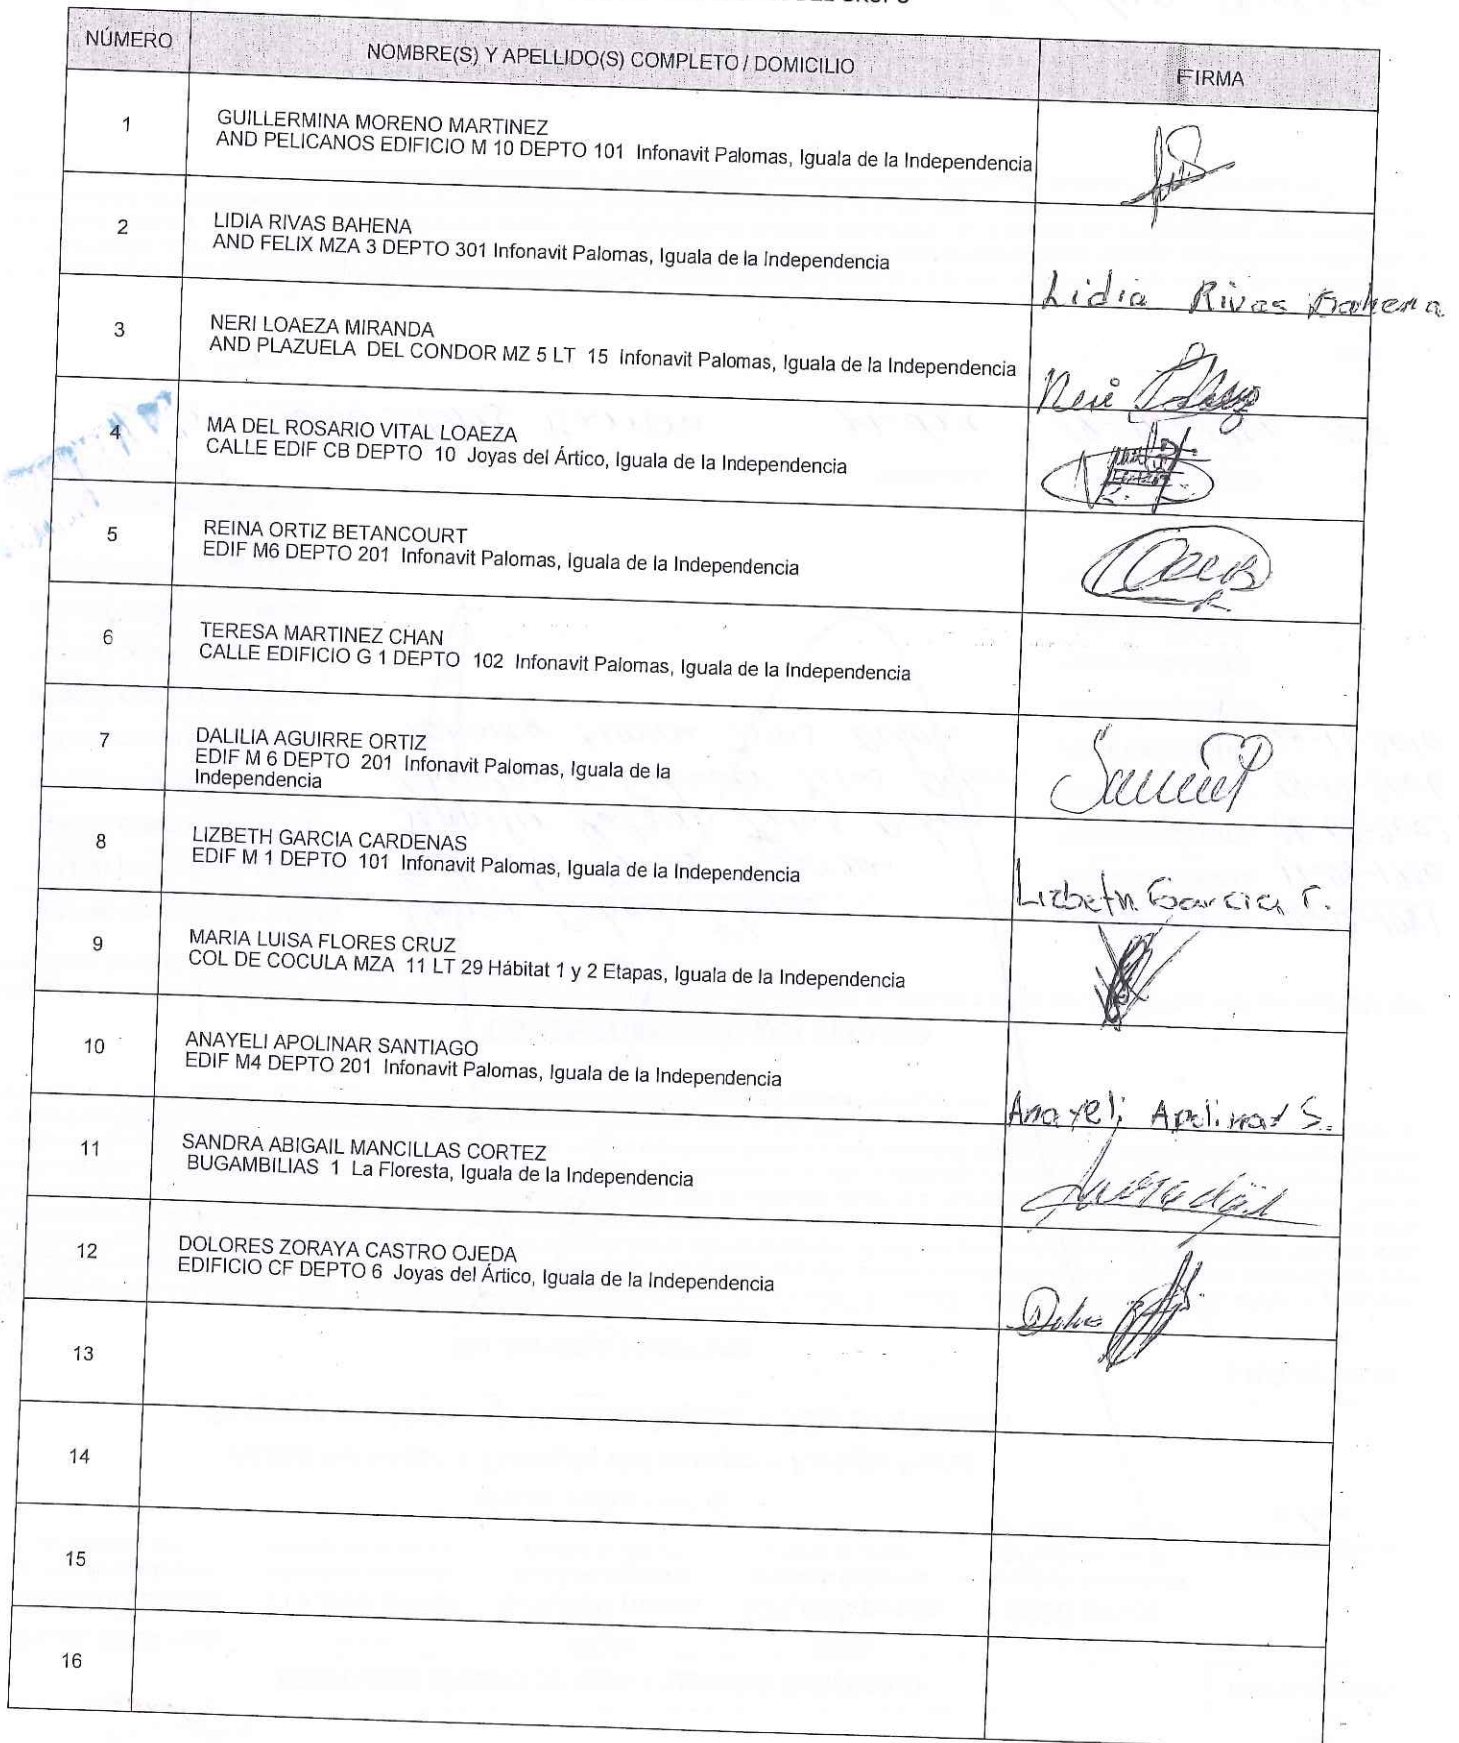 NÚMERO NOMBRE(S) Y APELLIDO(S) COMPLETO / DOMICILIO FIRMA
1 GUILLERMINA MORENO MARTINEZ
AND PELICANOS EDIFICIO M 10 DEPTO 101 Infonavit Palomas, Iguala de la Independencia
2 LIDIA RIVAS BAHENA
AND FELIX MZA 3 DEPTO 301 Infonavit Palomas, Iguala de la Independencia
Lidia Rivas Bahena
3 NERI LOAEZA MIRANDA
AND PLAZUELA DEL CONDOR MZ 5 LT 15 Infonavit Palomas, Iguala de la Independencia
Neri
4 MA DEL ROSARIO VITAL LOAEZA
CALLE EDIF CB DEPTO 10 Joyas del Ártico, Iguala de la Independencia
5 REINA ORTIZ BETANCOURT
EDIF M6 DEPTO 201 Infonavit Palomas, Iguala de la Independencia
6 TERESA MARTINEZ CHAN
CALLE EDIFICIO G 1 DEPTO 102 Infonavit Palomas, Iguala de la Independencia
7 DALILIA AGUIRRE ORTIZ
EDIF M 6 DEPTO 201 Infonavit Palomas, Iguala de la
Independencia
8 LIZBETH GARCIA CARDENAS
EDIF M 1 DEPTO 101 Infonavit Palomas, Iguala de la Independencia
Lizbeth Garcia C.
9 MARIA LUISA FLORES CRUZ
COL DE COCULA MZA 11 LT 29 Hábitat 1 y 2 Etapas, Iguala de la Independencia
10 ANAYELI APOLINAR SANTIAGO
EDIF M4 DEPTO 201 Infonavit Palomas, Iguala de la Independencia
Anayeli Apolinar S.
11 SANDRA ABIGAIL MANCILLAS CORTEZ
BUGAMBILIAS 1 La Floresta, Iguala de la Independencia
12 DOLORES ZORAYA CASTRO OJEDA
EDIFICIO CF DEPTO 6 Joyas del Ártico, Iguala de la Independencia
13
14
15
16